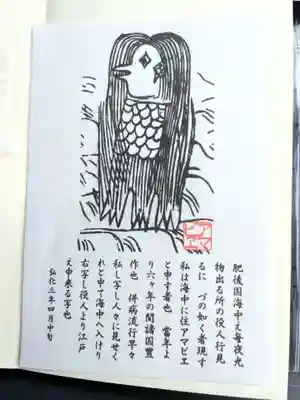 肥後国海中え毎夜光
物出る所の役人行見
るに づの如く者現す
私は海中に住アマビヱ
と申す者也 當年よ
り六ヶ年の間諸国豊
作也 併病流行早々
私し写し人々に見せく
れと申て海中へ入けり
右写し役人より江戸
え申来る写也
弘化三年四月中旬
アマビエ